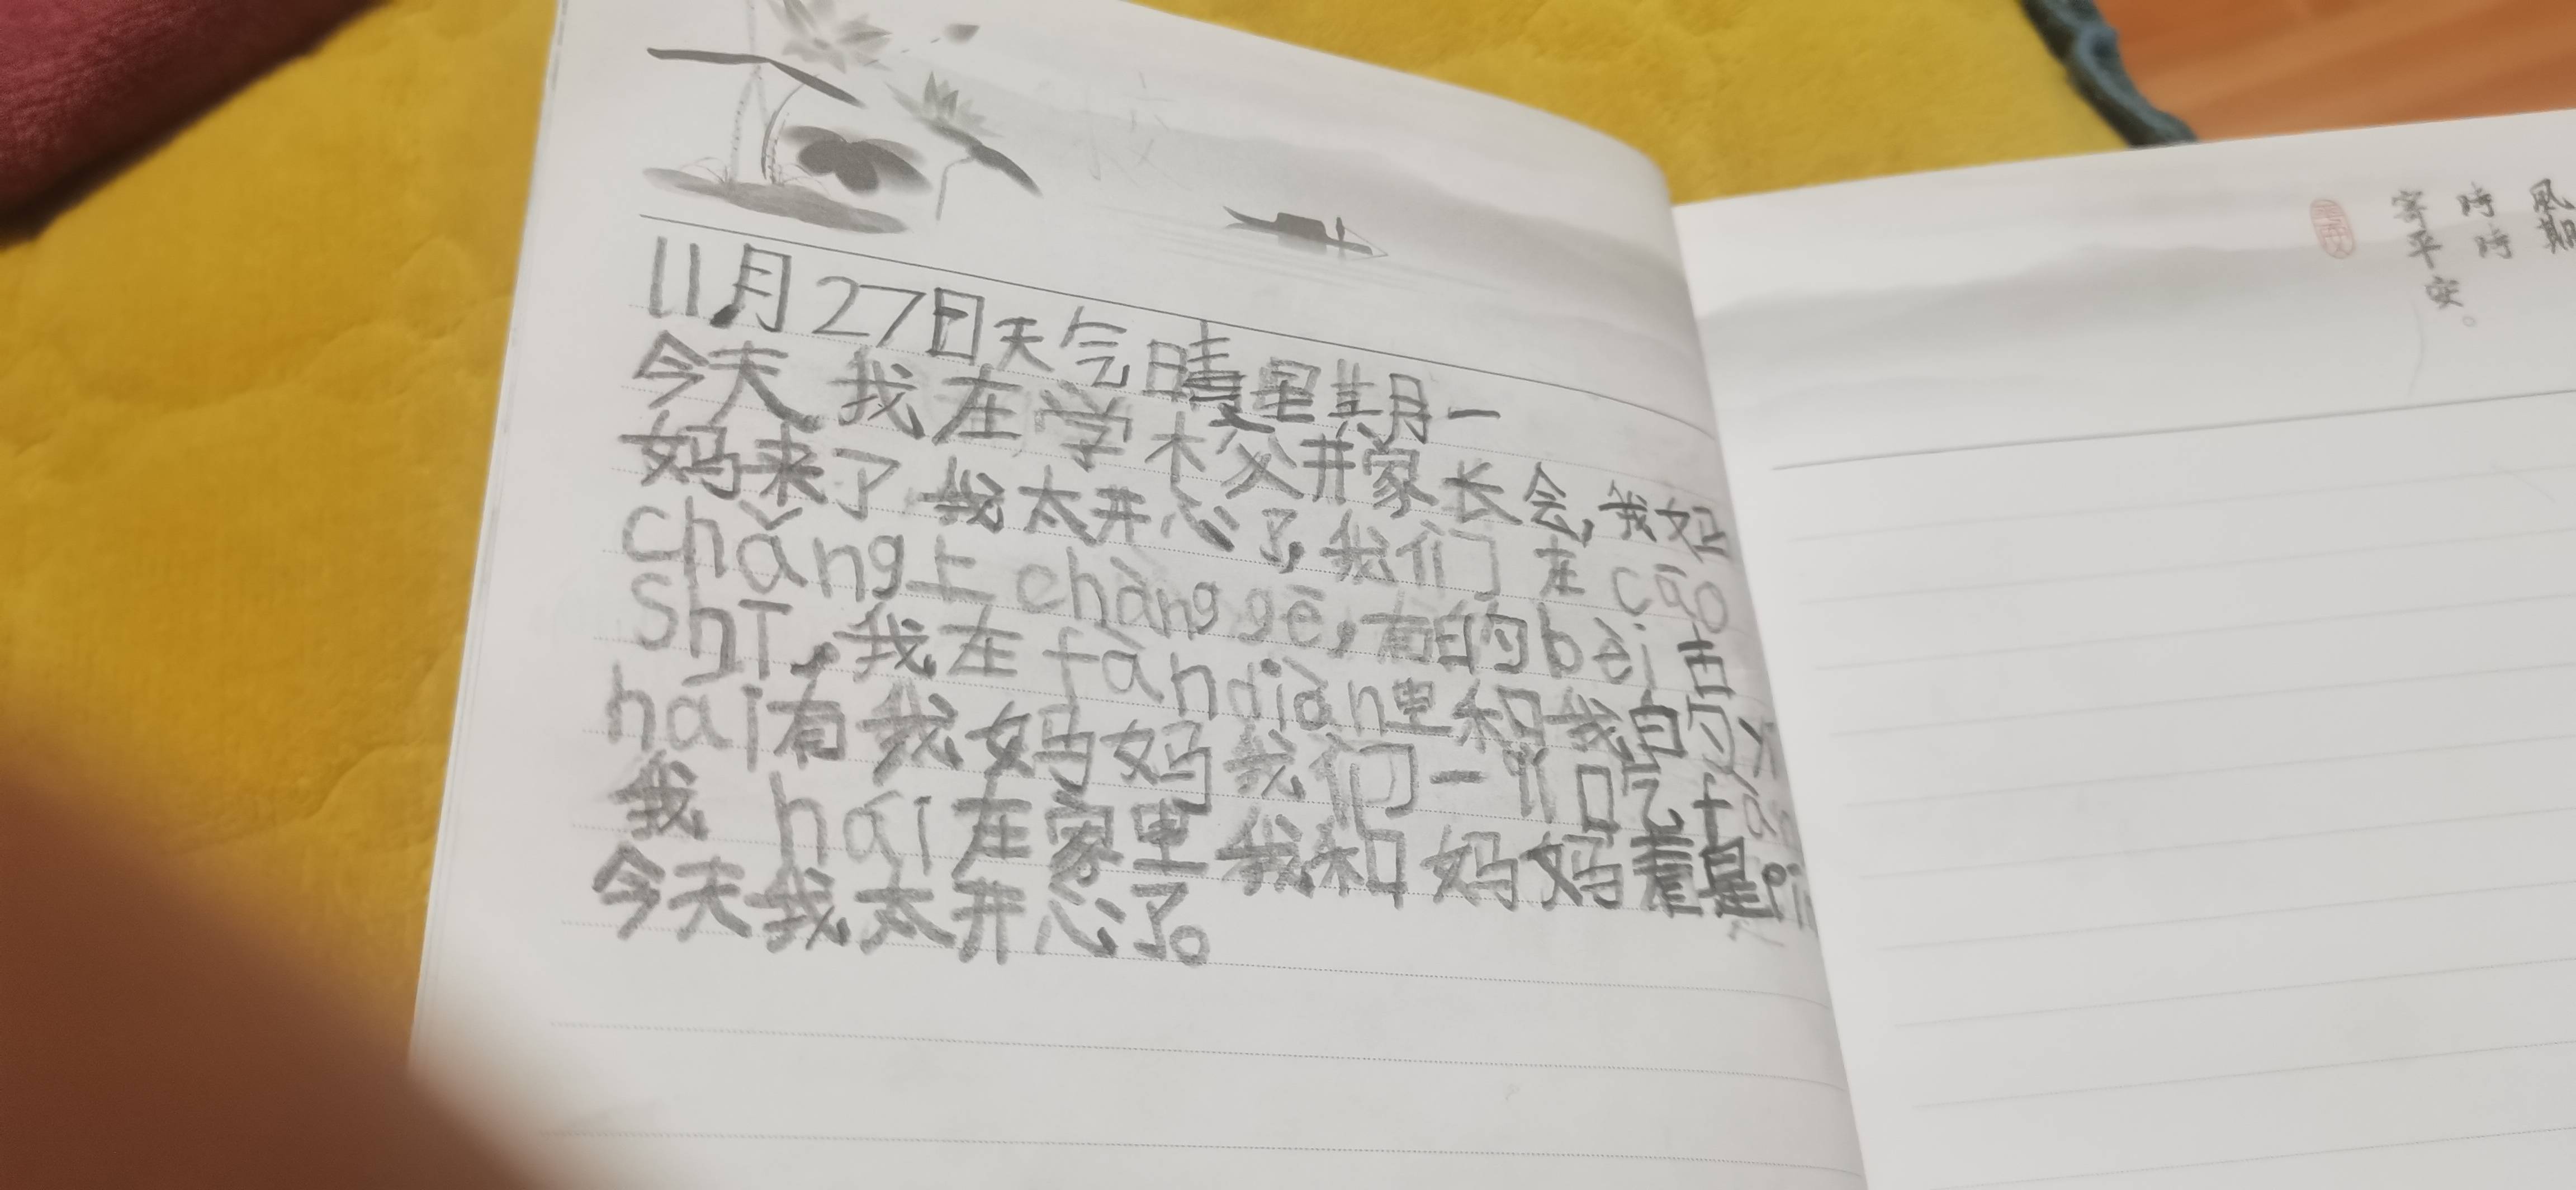 11月27日天气晴星期一
今天 我在学校开家长会,我妈
妈来了 我太开心了,我们 在 cāo
chǎng上 chàng gē,有的 bèi 古
Shī,我在 fàn diàn里和我的
hái有我妈妈 我们一
我 hái 在家里 我和 妈妈 看
今天我太开心了。
風期
時時
寄平安。